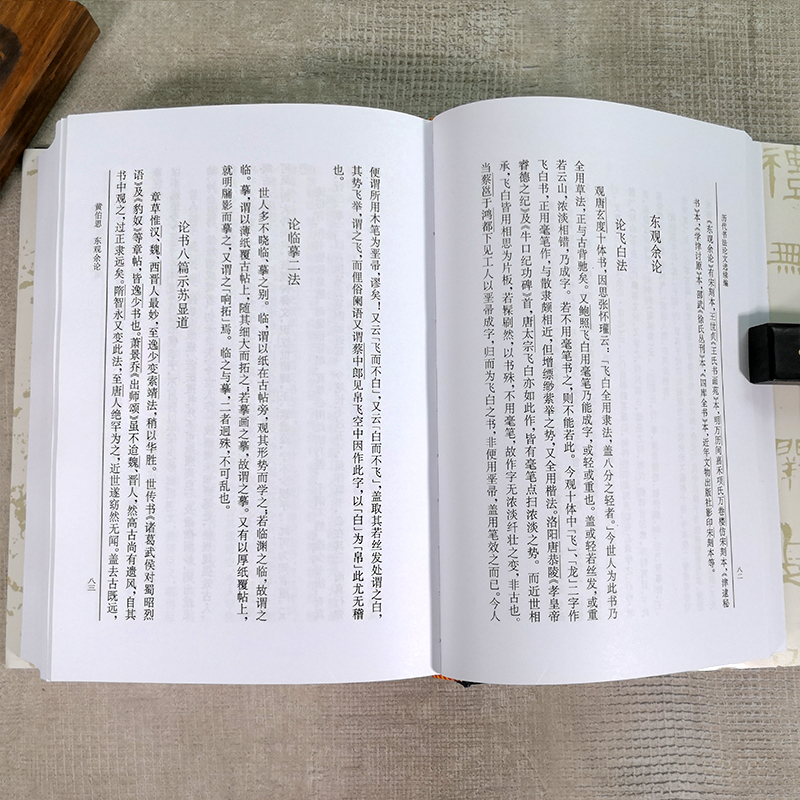 历代书法论文选续编
《东观余论》有宋刻本，王世贞《王氏书画苑》本，明万历间嘉禾项氏万卷楼仿宋刻本，《津逮秘
书》本，《学津讨原》本，邵武《徐氏丛刊》本，《四库全书》本，近年文物出版社影印宋刻本等。
八二
东观余论
论飞白法
观唐玄度十体书，因思张怀瓘云：「飞白全用隶法，盖八分之轻者。」今世人为此书乃
全用草法，正与古背驰矣。又鲍照飞白用毫笔乃能成字，或轻或重也。盖或轻若丝发，或重
若云山，浓淡相错，乃成字。若不用毫笔书之，则不能若此。今观十体中「飞」、「龙」二字作
飞白书，正用毫笔作，与散隶颇相近，但增缥缈萦举之势，又全用楷法。洛阳唐恭陵《孝皇帝
睿德之纪》及《牛口纪功碑》首，唐太宗飞白亦如此作，皆有毫笔点扫浓淡之势。而近世相
承，飞白皆用相思为片板，若髹刷然，以书殊，不用毫笔，故作字无浓淡纤壮之变，非古也。
当蔡邕于鸿都下见工人以垩帚成字，归而为飞白之书，非便用垩帚，盖用笔效之而已。今人
便谓所用木笔为垩帚，谬矣！又云「飞而不白」，又云「白而不飞」，盖取其若丝发处谓之白，
其势飞举，谓之飞。而俚俗阑语又谓蔡中郎见帛飞空中因作此字，以「白」为「帛」此尤无稽
也。
论临摹二法
世人多不晓临、摹之别。临，谓以纸在古帖旁，观其形势而学之，若临渊之临，故谓之
临。摹，谓以薄纸覆古帖上，随其细大而拓之，若摹画之摹，故谓之摹。又有以厚纸覆帖上，
就明牖影而摹之，又谓之「响拓」焉。临之与摹，二者迥殊，不可乱也。
论书八篇示苏显道
章草惟汉、魏、西晋人最妙，至逸少变索靖法，稍以华胜。世传书《诸葛武侯对蜀昭烈
语》及《豹奴》等章帖，皆逸少书也。萧景乔《出师颂》虽不迨魏、晋人，然高古尚有遗风，自其
书中观之，过正隶远矣。隋智永又变此法，至唐人绝罕为之，近世遂窈然无闻。盖去古既远，
黄伯思　东观余论
八三